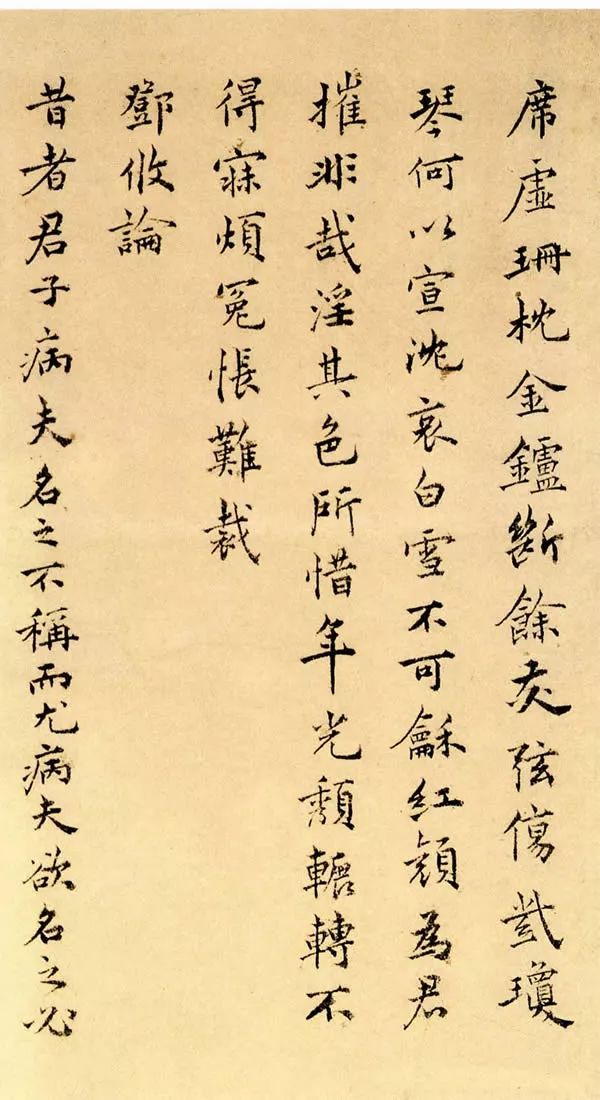 席虛珊枕金鑪斷餘灰弦傷對瓊
琴何以宣沈哀白雪不可龢紅顏為君
摧非哉淫其色所惜年光頹轆轉不
得寐煩冤悵難裁
鄧攸論
昔者君子病夫名之不稱而尤病夫欲名之必